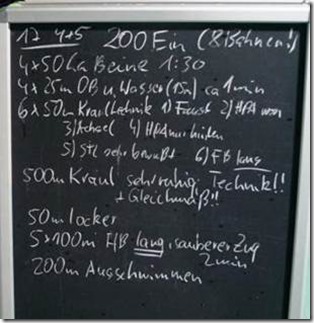 200 Ein (8 Bahnen!)
4x50 La Beine 1:30
4x25m OB u. Wasser ca 1min
6x50m Kraul Technik 1) Faust 2)
3) Achsel 4)
5) Stl sehr bewußt 6) FB lang
500m Kraul sehr ruhig Technik!!
+ Gleichmäß!!
50m locker
5x100m F/B lang, sauberer Zug
2min
200m Ausschwimmen